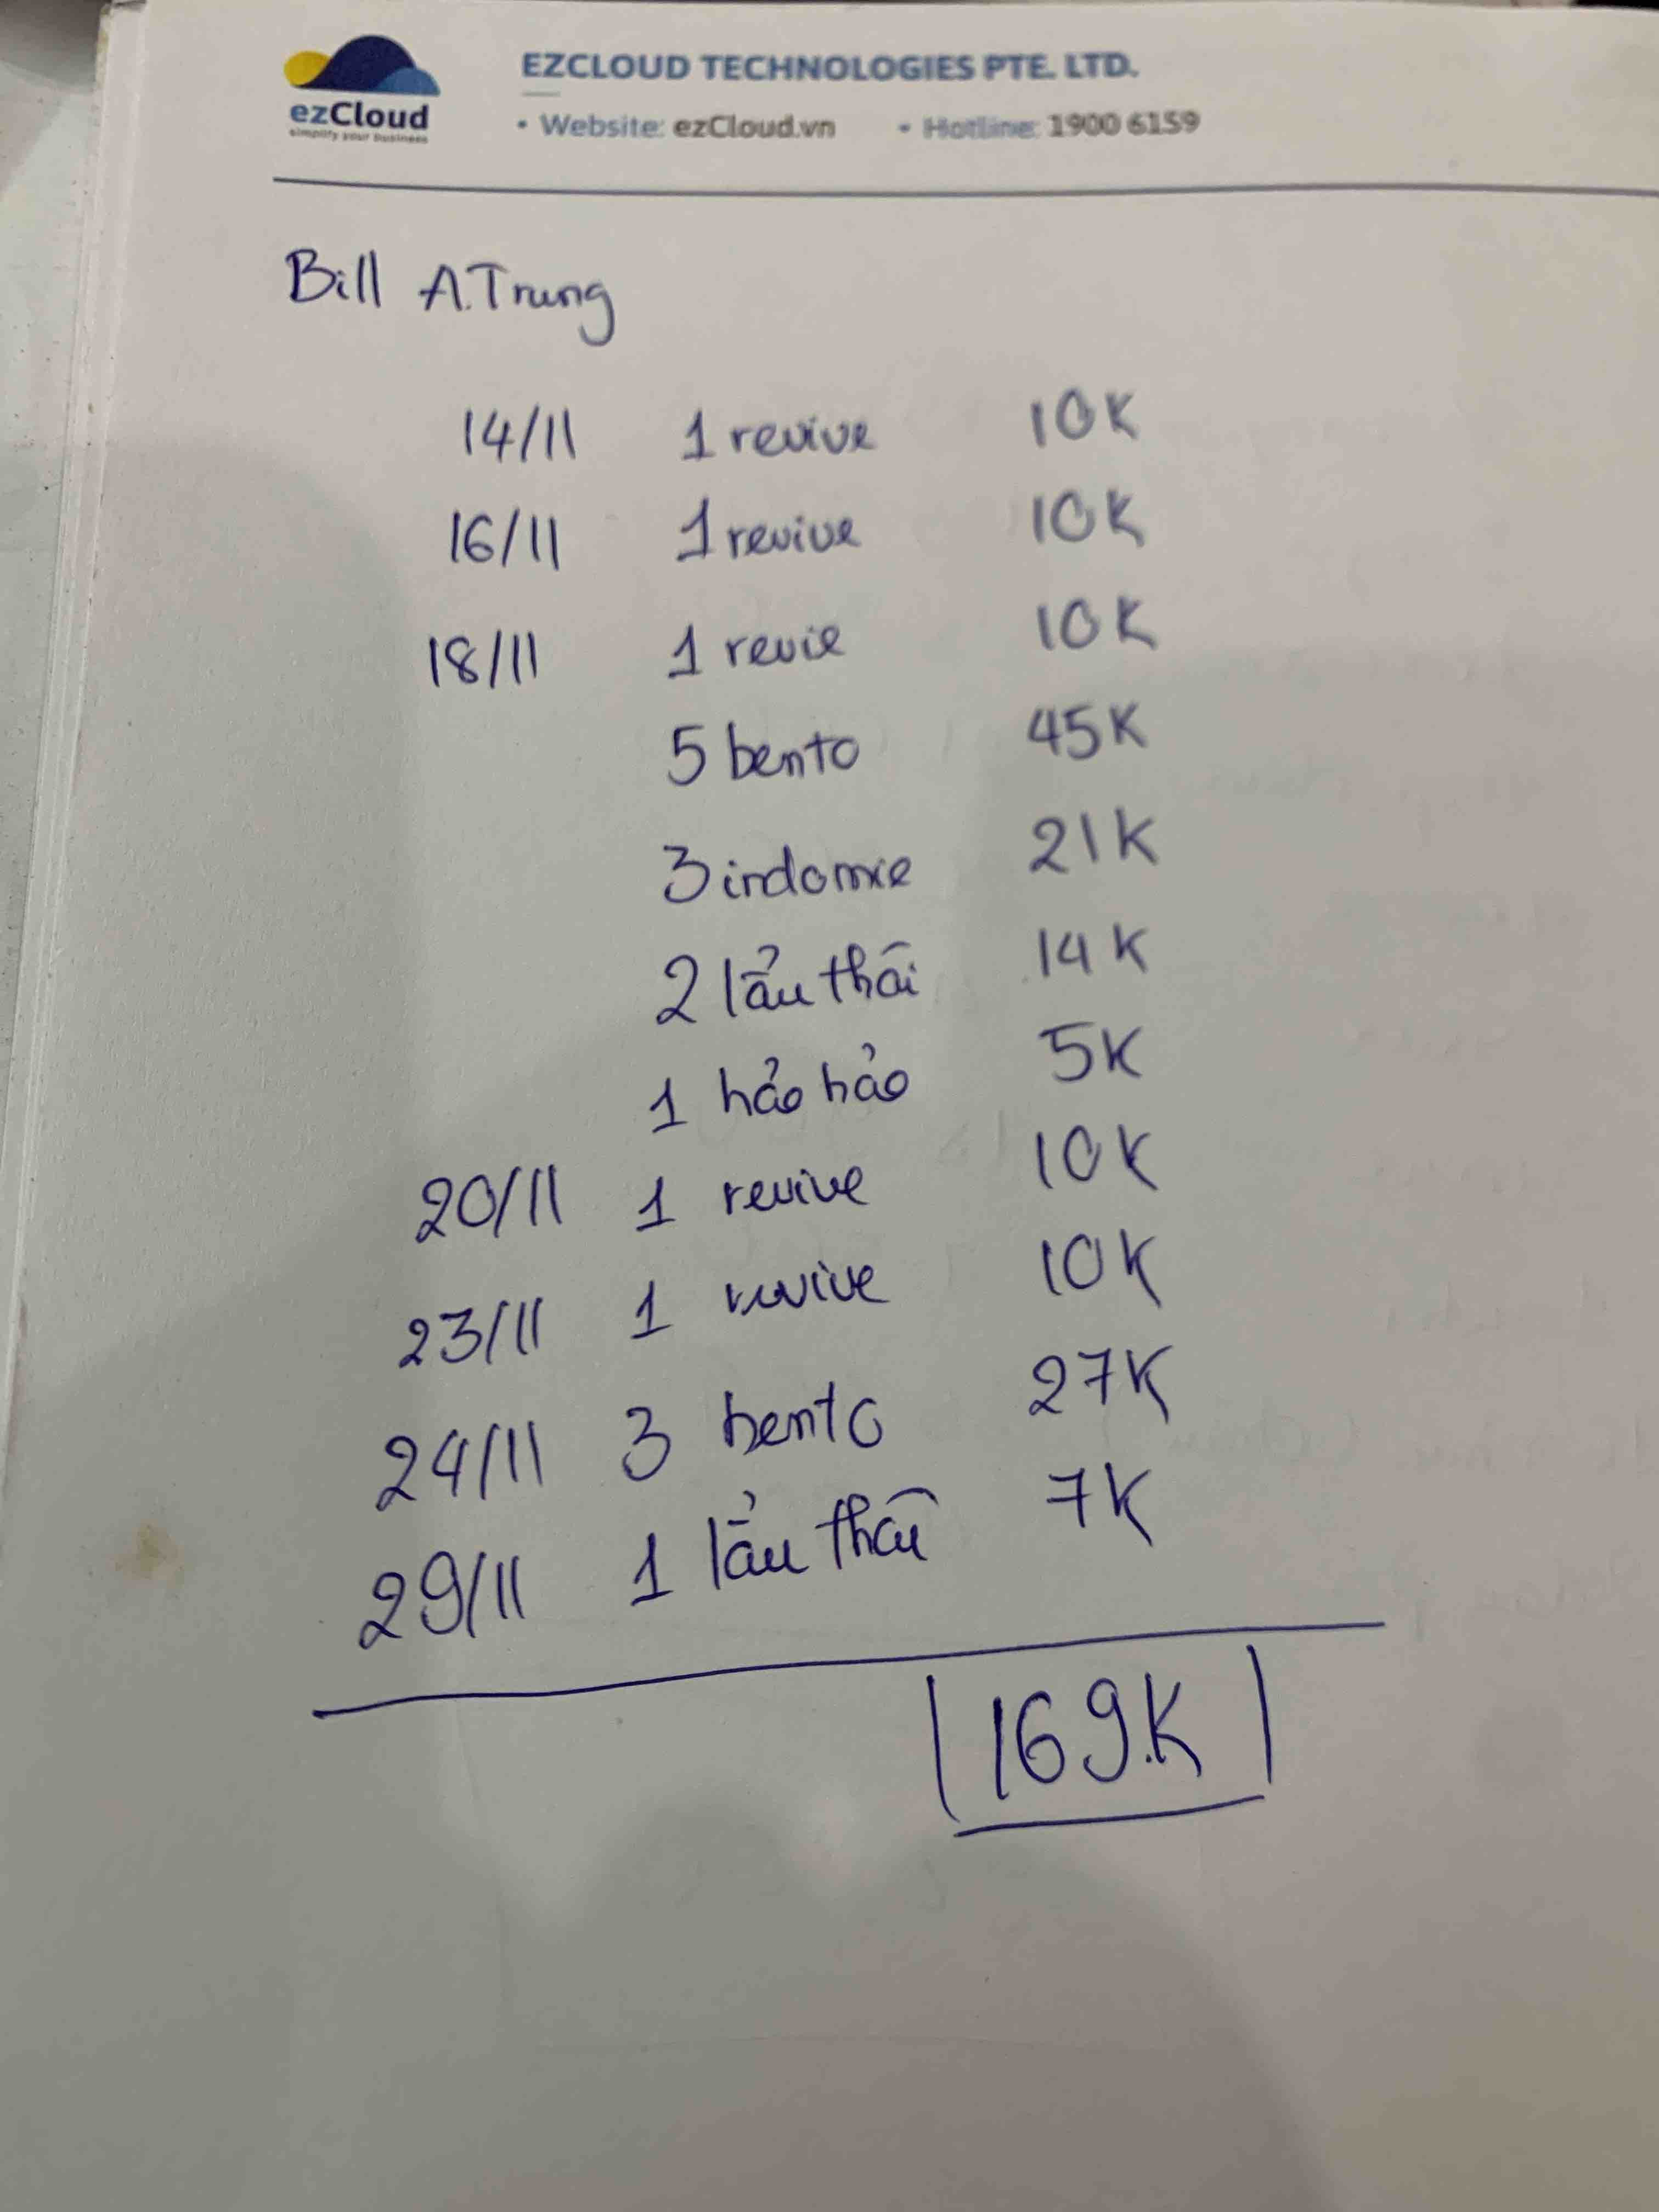 ezCloud
simplify your business
EZCLOUD TECHNOLOGIES PTE. LTD.
• Website: ezCloud.vn • Hotline: 1900 6159
Bill A.Trung
14/11 1 revive 10K
16/11 1 revive 10K
18/11 1 revie 10K
5 bento 45K
3 indomie 21K
2 lẩu thái 14K
1 hảo hảo 5K
20/11 1 revive 10K
23/11 1 revive 10K
24/11 3 bento 27K
29/11 1 lẩu thái 7K
169.K